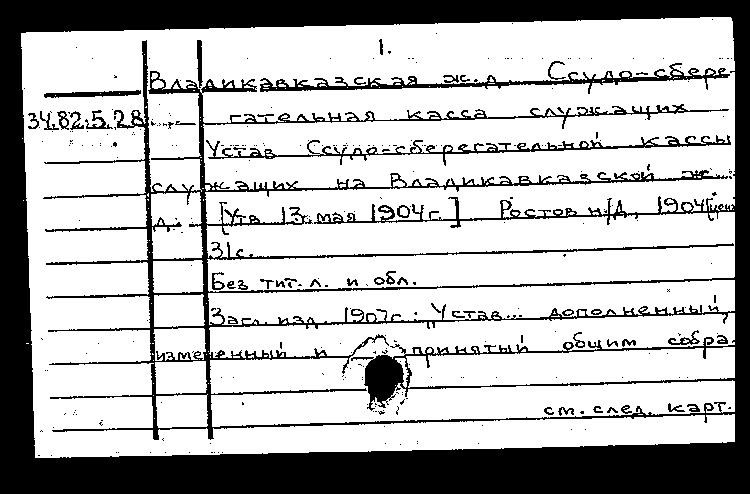 1.
Владикавказская ж.д. Ссудо-сбере-
34.82.5.28 гательная касса служащих
Устав Ссудо-сберегательной кассы
служащих на Владикавказской ж.
д. [Утв. 13 мая 1904 г.] Ростов н/Д, 1904 [ценз]
31 с.
Без тит. л. и обл.
Загл. изд. 1907 г.: "Устав... дополненный,
измененный и принятый общим собра-
см. след. карт.